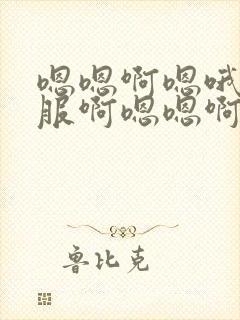 嗯嗯啊嗯哦
服啊嗯嗯啊
鲁比克